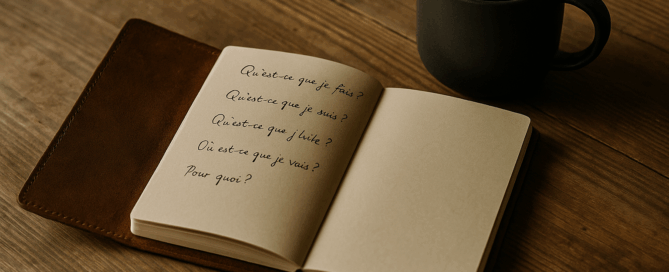 Qu'est-ce que je fais ?
Qu'est-ce que je suis ?
Qu'est-ce que j'
Où est-ce que je vais ?
Pour quoi ?